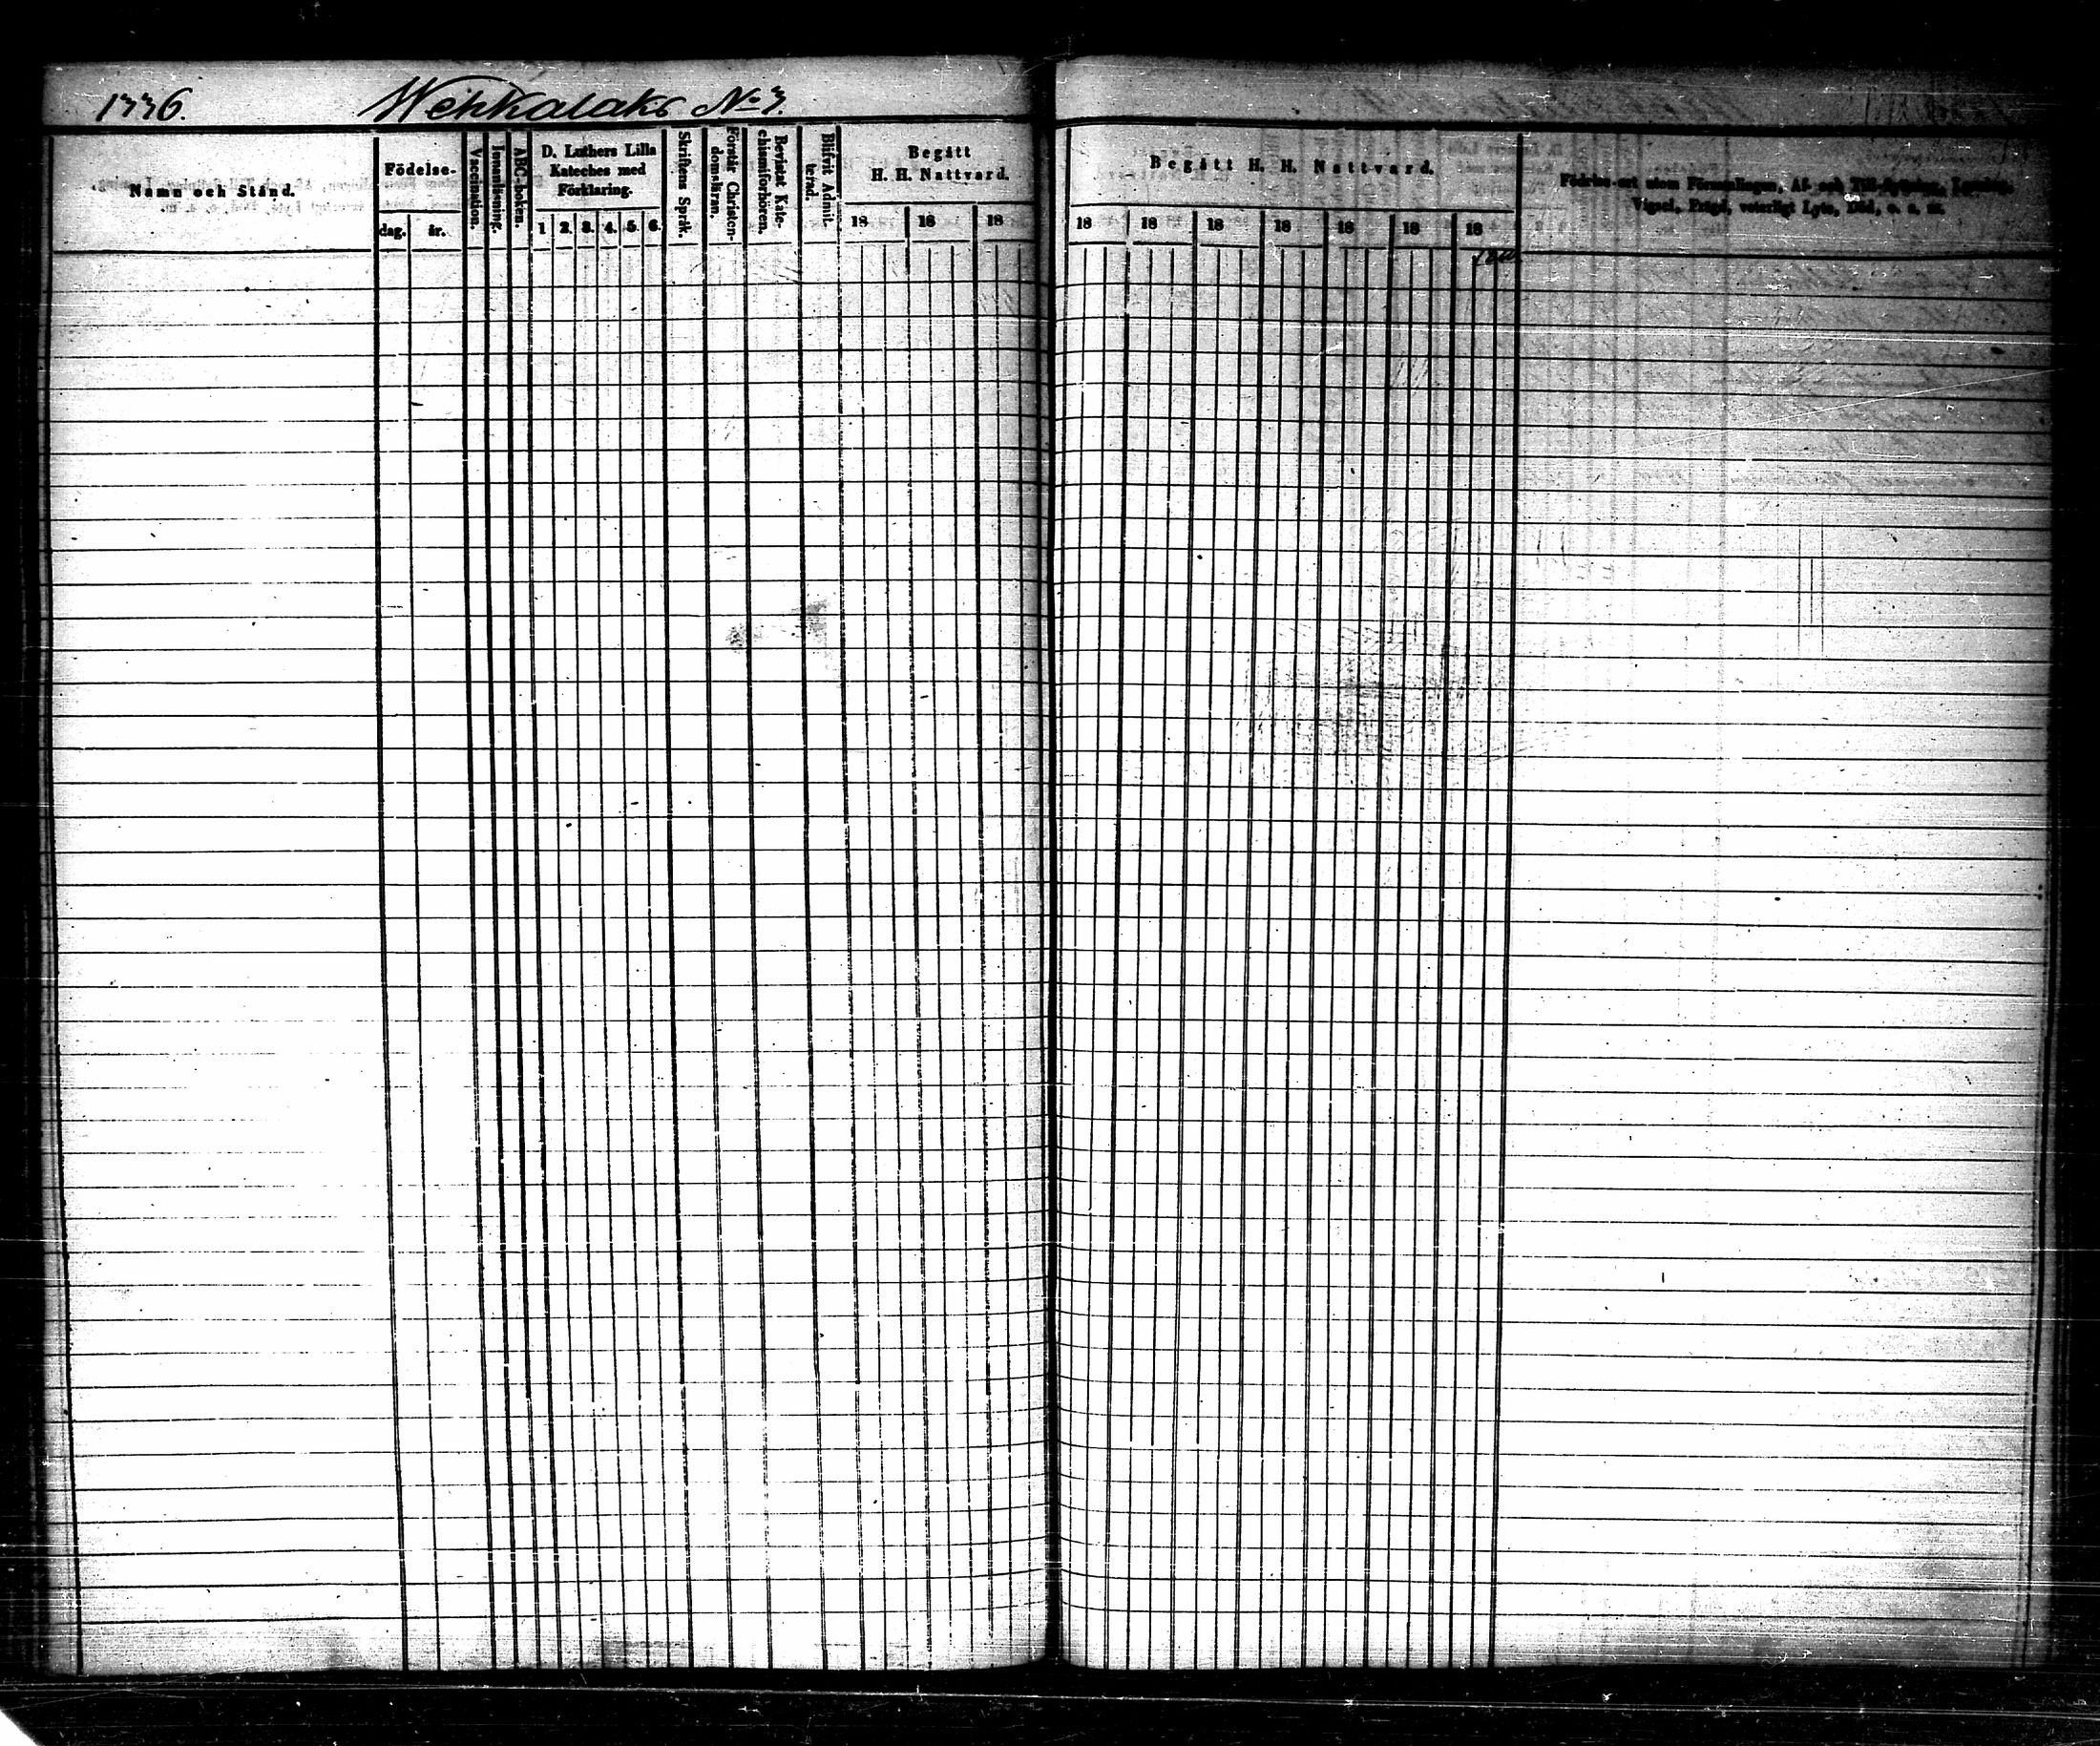 1776. Wehkalaks No 7.
Namn och Stånd.
Födelse-
dag. år.
Vaccination.
Innanläsning.
ABC-boken.
D. Luthers Lilla
Kateches med
Förklaring.
1 2. 3. 4. 5. 6.
Skriftens Språk.
Förstår Christen-
domsläran.
Bevistat Kate-
chismiförhören.
Blifvit Admit-
terad.
Begått
H. H. Nattvard.
18 18 18
Begått H. H. Nattvard.
18 18 18 18 18 18 18
Födelse-ort utom Församlingen, Af- och Till-flyttning, Lysning,
Vigsel, Frägd, veterligt Lyte, Död, o. s. m.